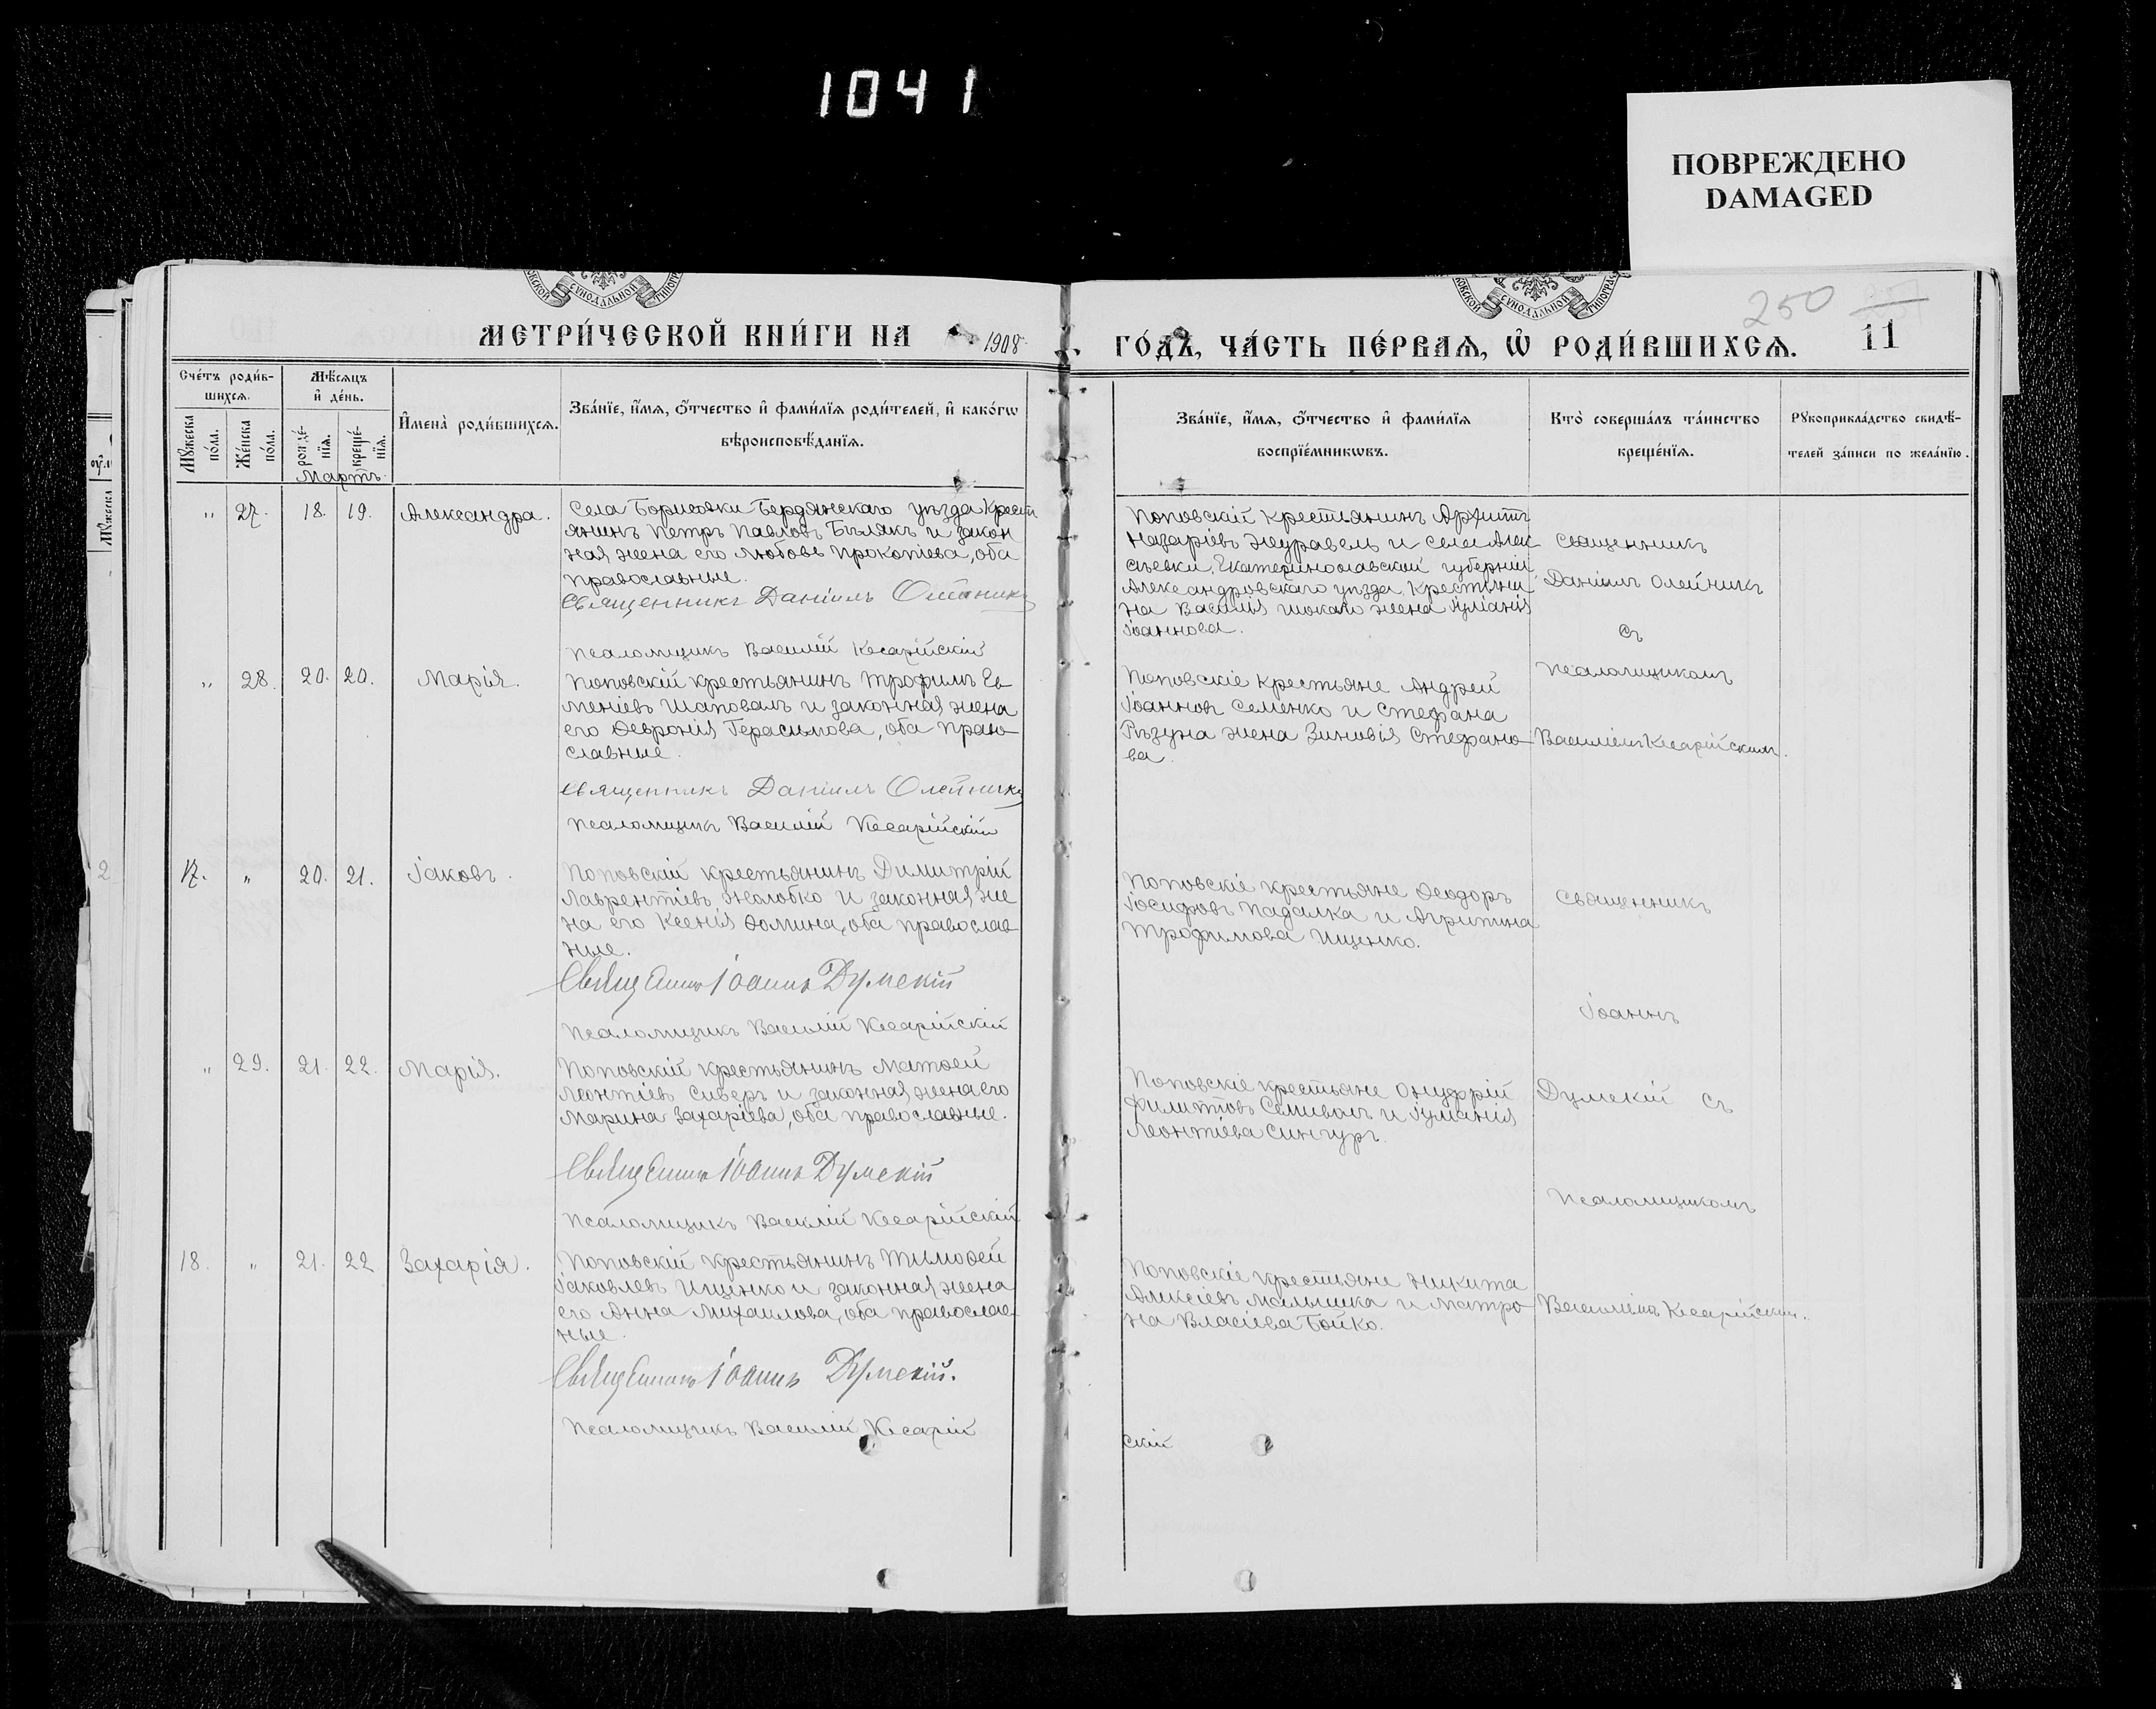 1041
ПОВРЕЖДЕНО
DAMAGED
МЕТРИ́ЧЕСКОЙ КНИ́ГИ НА 1908
ГО́ДЪ, ЧА́СТЬ ПЕ́РВАѦ, Ѡ҆ РОДИ́ВШИХСѦ.
250
11
Сче́тъ роди́в-
шихсѧ.
Мѣ́сѧцъ
и҆ де́нь.
Мꙋжеска
по́ла.
Же́нска
по́ла.
рожде́-
нїѧ.
креще́-
нїѧ.
И҆мена̀ роди́вшихсѧ.
Зва́нїе, и҆́мѧ, ѻ҆́тчество и҆ фами́лїѧ роди́телей, и҆ како́гѡ
вѣроисповѣ́данїѧ.
Зва́нїе, и҆́мѧ, ѻ҆́тчество и҆ фами́лїѧ
воспрїе́мникѡвъ.
Кто̀ соверша́лъ та́инство
креще́нїѧ.
Рꙋкоприкла́дство свидѣ́-
телей за́писи по жела́нїю.
Мартъ.
" 27. 18. 19. Александра.
Села Борисовки Бердянскаго уѣзда Крест
янинъ Петръ Павловъ Бѣлякъ и закон
ная жена его Любовь Прокопіева, оба
православные.
Священникъ Даніилъ Олейникъ
Псаломщикъ Василій Кесарійскій
Поповскій крестьянинъ Архипъ
Назаріевъ Журавель и села Алек
сѣевки, Екатеринославской губерніи
Александровскаго уѣзда, Крестьяни
на Василія жена Іуліанія
Іоаннова.
Священникъ
Даніилъ Олейникъ
съ
псаломщикомъ
Василіемъ Кесарійскимъ.
" 28. 20. 20. Марія.
Поповскій крестьянинъ Трофимъ Ев
меніевъ Шаповалъ и законная жена
его Ѳеѵронія Герасимова, оба право-
славные.
Священникъ Даніилъ Олейникъ
Псаломщикъ Василій Кесарійскій
Поповскіе крестьяне Андрей
Іоанновъ Семенко и Стефана
Рѣзуна жена Зиновія Стефано-
ва.
17. " 20. 21. Іаковъ.
Поповскій крестьянинъ Димитрій
Лаврентіевъ Жолобко и законная же
на его Ксенія Ѳомина, оба православ-
ные.
Священникъ Іоаннъ Думскій
Псаломщикъ Василій Кесарійскій
Поповскіе крестьяне Ѳеодоръ
Іосифовъ Падалка и Агрипина
Трофимова Ищенко.
Священникъ
Іоаннъ
Думскій съ
псаломщикомъ
Василіемъ Кесарійским.
" 29. 21. 22. Марія.
Поповскій крестьянинъ Матѳей
Леонтіевъ Сиверъ и законная жена его
Марина Захаріева, оба православные.
Священникъ Іоаннъ Думскій
Псаломщикъ Василій Кесарійскій
Поповскіе крестьяне Онуфрій
Филиповъ Селиванъ и Іуліанія
Леонтіева Сингуръ.
18. " 21. 22 Захарія.
Поповскій крестьянинъ Тимоѳей
Іаковлевъ Ищенко и законная жена
его Анна Михаилова, оба православ-
ные.
Священникъ Іоаннъ Думскій.
Псаломщикъ Василій Кесарій
скій
Поповскіе крестьяне Никита
Алексіевъ Малышка и Матро-
на Власіева Бойко.